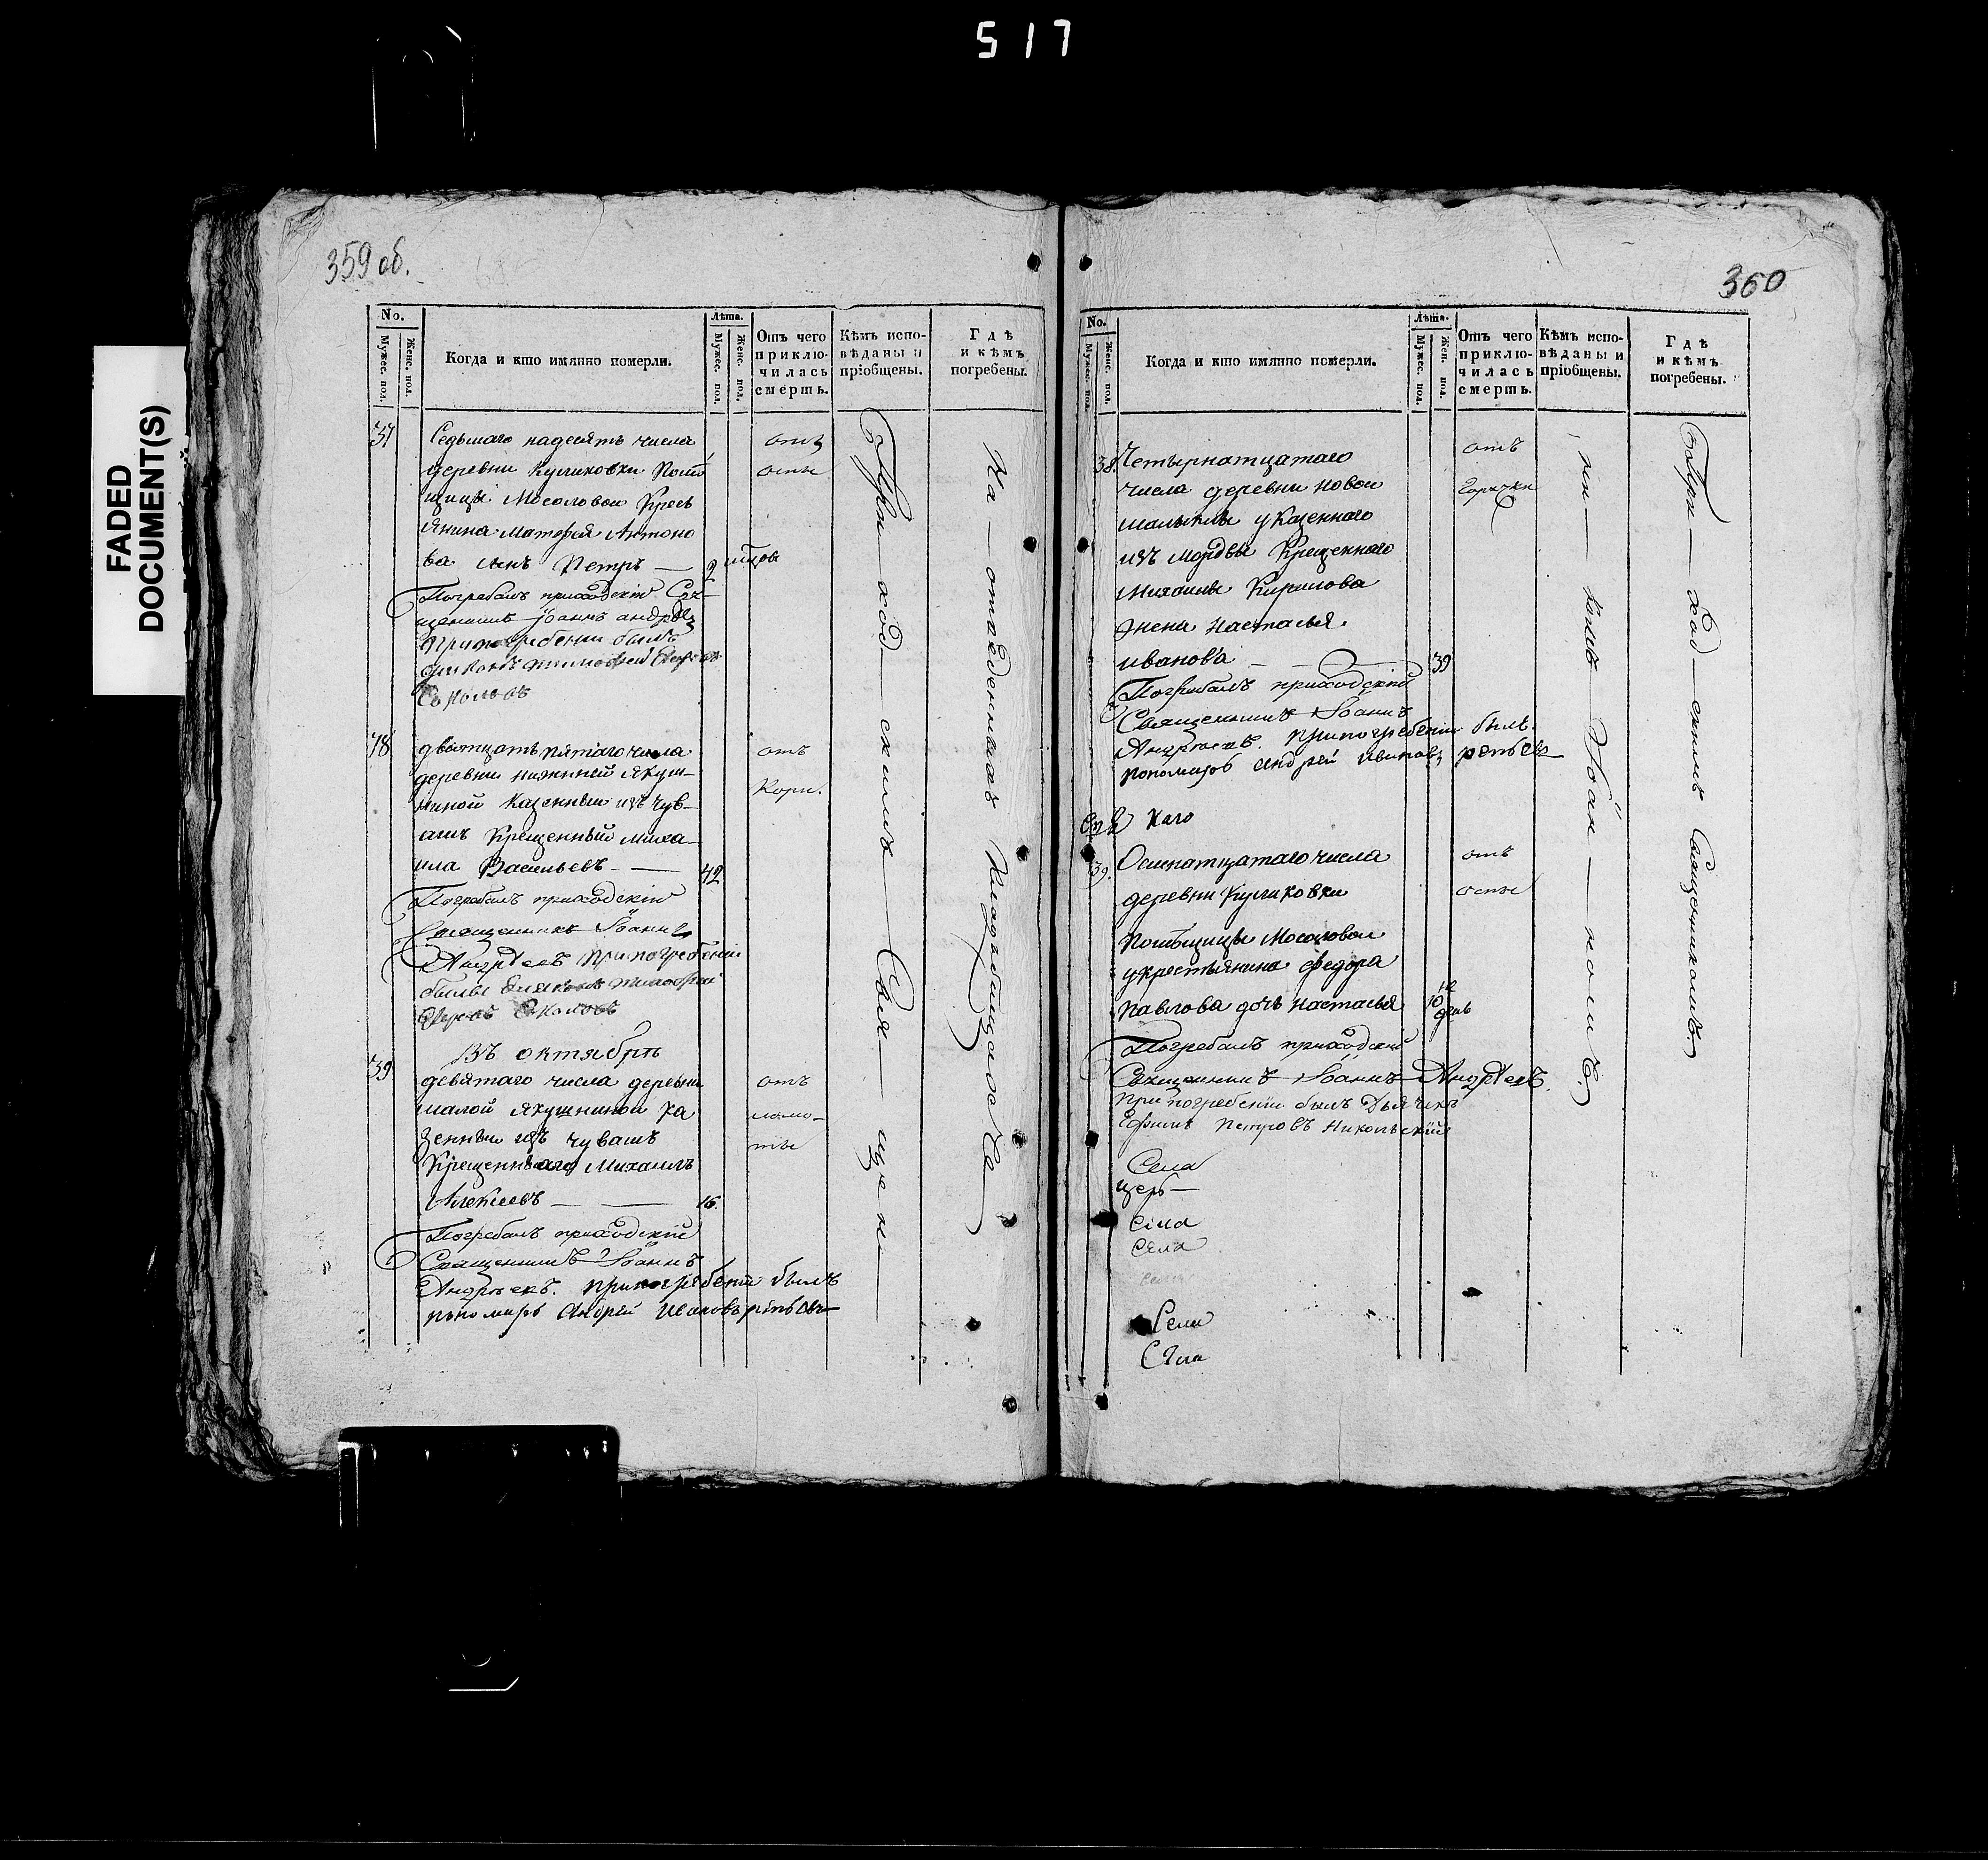 517
FADED
DOCUMENT(S)
359 об.
No.
Мужес. пол.
Женс. пол.
Когда и кто имянно померли.
Лѣта.
Мужес. пол.
Женс. пол.
Отъ чего приключилась смерть.
Кѣмъ исповѣданы и пріобщены.
Гдѣ и кѣмъ погребены.
37
Седьмаго надесять числа
деревни Куликовки Помѣ
щицы Мосоловой Кресть
янина Матефея Антоно
ва сынъ Петръ — 2
отъ
оспы
Погребалъ приходскій Свя
щенникъ Іоаннъ Андреевъ
При погребеніи былъ
діаконъ Тимофей
Соколовъ
38
дватцать пятаго числа
деревни нижнней Якуш-
киной Казенный изъ чув-
ашъ Крещенный Миха-
ила Васильевъ — 42
отъ
Кори.
Погребалъ приходскій
Священникъ Іоаннъ
Андреевъ При погребеніи
былъ діяконъ Тимофей
Соколовъ
Въ октябрѣ
39
девятаго числа деревни
малой Якушкиной ка
зенный изъ чувашъ
Крещеннаго Михаилъ
Алексеевъ — 16.
отъ
ломо-
ты
Погребалъ приходскій
Священникъ Іоаннъ
Андреевъ. При погребеніи былъ
пономарь Андрей Ивановъ
При ход скимъ Свя ще н
На отведенномъ Кладбище
360
No.
Мужес. пол.
Женс. пол.
Когда и кто имянно померли.
Лѣта.
Мужес. пол.
Жен. пол.
Отъ чего приключилась смерть.
Кѣмъ исповѣданы и пріобщены.
Гдѣ и кѣмъ погребены.
38.
Четырнатцатаго
числа деревни Новой
малыклы указеннаго
изъ мордвы Крещеннаго
Михаилы Кирилова
жена Настасья
иванова — 39
отъ
Горячки
Погребалъ приходскій
Священникъ Іоаннъ
Андреевъ. При погребеніи былъ
пономарь Андрей Ивановъ
39.
Осмнатцатаго числа
деревни Куликовки
Помѣщицы Мосоловой
укрестьянина Федора
Павлова дочь Настасья 10
отъ
оспы
Погребалъ приходскій
Священникъ Іоаннъ Андреевъ.
При погребеніи былъ Дьячекъ
Ефимъ Петровъ Никольскій
Села
церь
Села
Села
Села
Села
ни комъ Іоан номъ.
При ход скимъ Священникомъ.